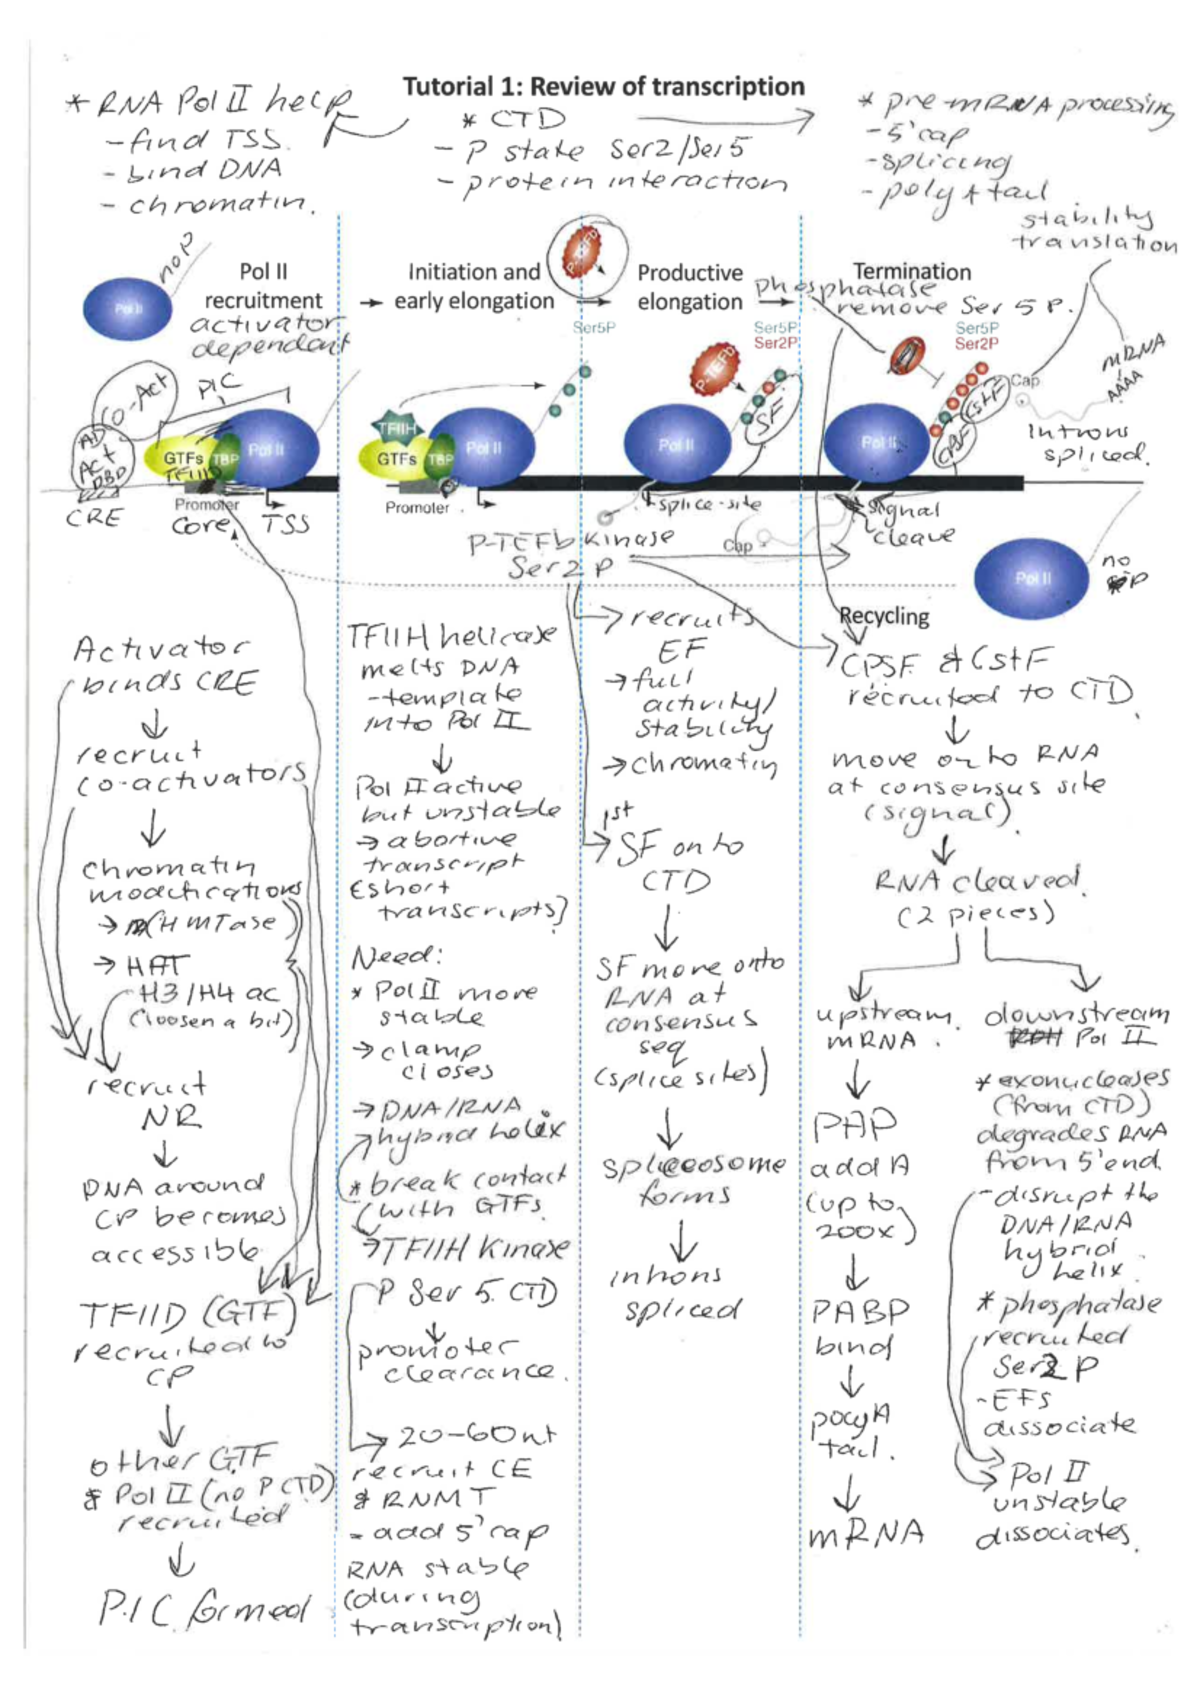 Tutorial 1: Review of transcription
* RNA Pol II help
- find TSS.
- bind DNA
- chromatin.
* CTD
- P state Ser2/Ser5
- protein interaction
* pre-mRNA processing
- 5' cap
- splicing
- poly A tail
stability
translation
no P
Pol II
Pol II
recruitment
activator
dependant
PIC
Co-Act
AD
Act
DBD
CRE
GTFs
TBP
Pol II
TFIID
Promoter
Core
TSS
Initiation and
early elongation
P-TEFb
Ser5P
TFIIH
GTFs
TBP
Pol II
Promoter
Productive
elongation
Ser5P
Ser2P
P-TEFb
SF
Pol II
splice-site
P-TEFb kinase
Ser 2 P
Cap
Termination
phosphatase
remove Ser 5 P.
Ser5P
Ser2P
CstF
CPSF
Cap
mRNA
AAAA
Introns
spliced.
Pol II
signal
cleave
Pol II
no
P
Recycling
Activator
binds CRE
↓
recruit
co-activators
↓
chromatin
modifications
→ (HMTase)
→ HAT
H3/H4 ac
(loosen a bit)
recruit
NR
↓
DNA around
CP becomes
accessible
TFIID (GTF)
recruited to
CP
↓
other GTF
& Pol II (no P CTD)
recruited
↓
P.I.C. formed
TFIIH helicase
melts DNA
- template
into Pol II
↓
Pol II active
but unstable
→ abortive
transcript
(short
transcripts)
Need:
* Pol II more
stable
→ clamp
closes
→ DNA/RNA
hybrid helix
* break contact
(with GTFs
→ TFIIH Kinase
P Ser 5 CTD
↓
promoter
clearance.
→ 20-60nt
recruit CE
& RNMT
- add 5' cap
RNA stable
(during
transcription)
→ recruits
EF
→ full
activity/
stability
→ chromatin
1st
→ SF onto
CTD
↓
SF move onto
RNA at
consensus
seq
(splice sites)
↓
spliceosome
forms
↓
introns
spliced
CPSF & CstF
recruited to CTD.
↓
move onto RNA
at consensus site
(signal).
↓
RNA cleaved.
(2 pieces)
upstream.
mRNA.
↓
PAP
add A
(up to
200x)
↓
PABP
bind
↓
poly A
tail.
↓
mRNA
downstream
Pol II
* exonucleases
(from CTD)
degrades RNA
from 5' end.
- disrupt the
DNA/RNA
hybrid
helix.
* phosphatase
recruited
Ser2 P
- EFs
dissociate
→ Pol II
unstable
dissociates.